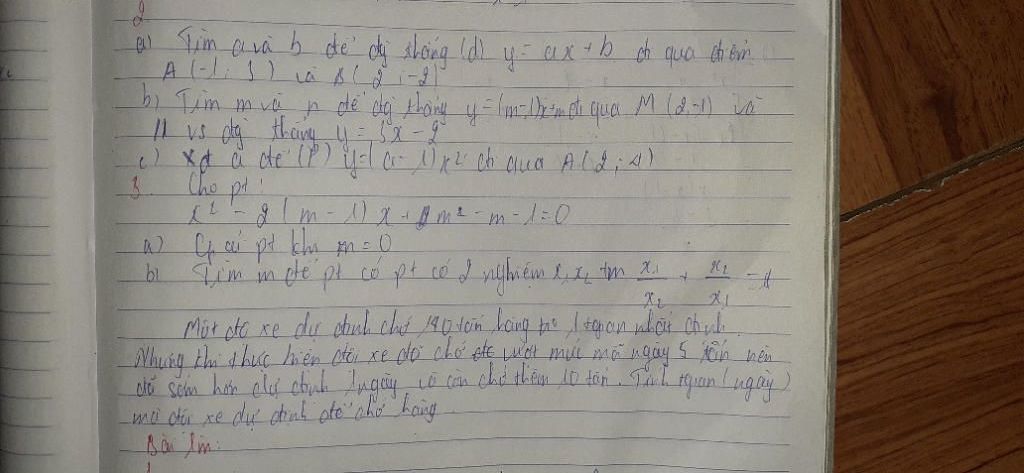 2
a) Tìm a và b để đg thẳng (d) y = ax + b đi qua điểm
A (-1; 5) và B ( 2 ; -2)
b) Tìm m và n để đg thẳng y = (m-1)x+n đi qua M (2,-1) và
// vs đg thẳng y = 5x - 2
c) xđ a để (P) y = ( a - 1) x² đi qua A ( 2 ; 4)
3. Cho pt :
x² - 2 ( m - 1) x + m² - m - 1 = 0
a) Giải pt khi m = 0
b) Tìm m để pt có pt có 2 nghiệm x₁ x₂ tm x₁/x₂ + x₂/x₁ = 4
Một đội xe dự định chở 140 tấn hàng tr 1 tgian nhất định.
Nhưng khi thực hiện đội xe đó chở vượt mức mỗi ngày 5 tấn nên
đã sớm hơn dự định 1 ngày và còn chở thêm 10 tấn. Tính tgian (ngày)
mà đội xe dự định để chở hàng
Bài làm: